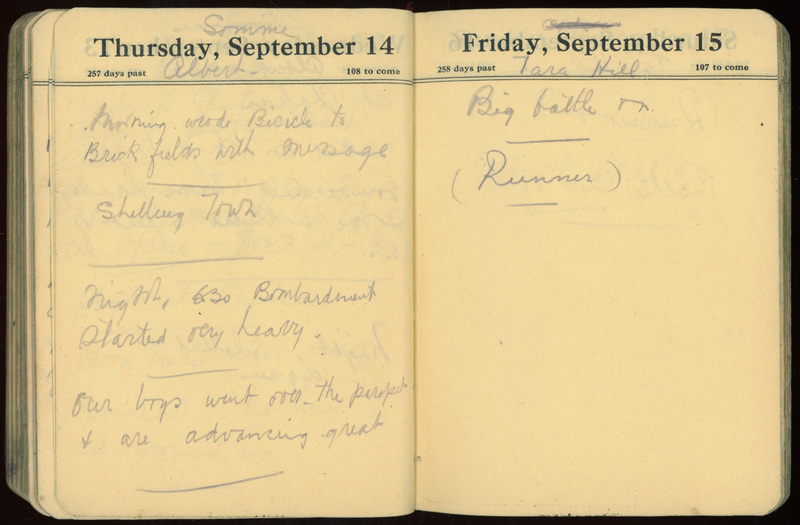 Somme
Thursday, September 14
257 days past
Albert
108 to come
Morning rode Bicicle to
Brick fields with message
Shelling Town
Night, 630 Bombardment
started very heavy.
Our boys went over the parapet
& are advancing great
Friday, September 15
258 days past
Tara Hill
107 to come
Big battle on.
(Runner)